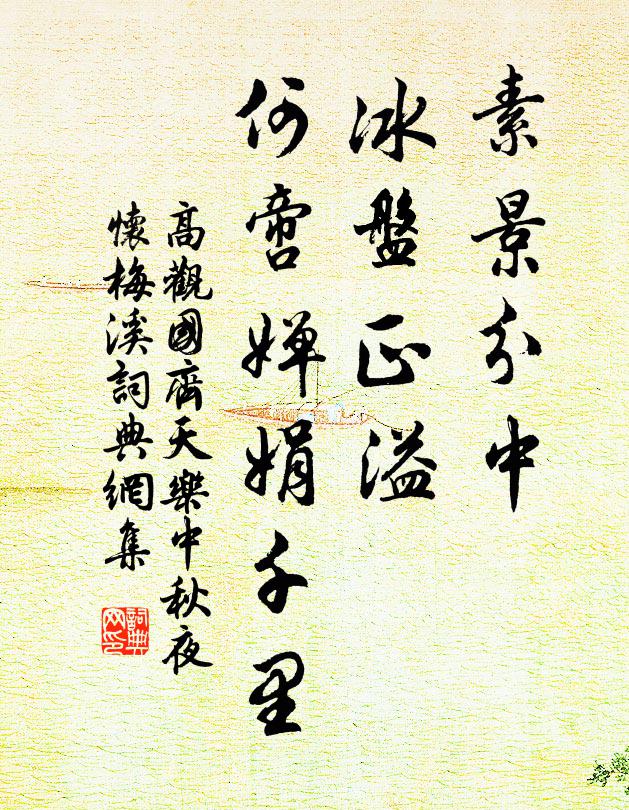 素景分中
冰盤正溢
何啻嬋娟千里
高觀國齊天樂中秋夜
懷梅溪詞典網集
詞典网印